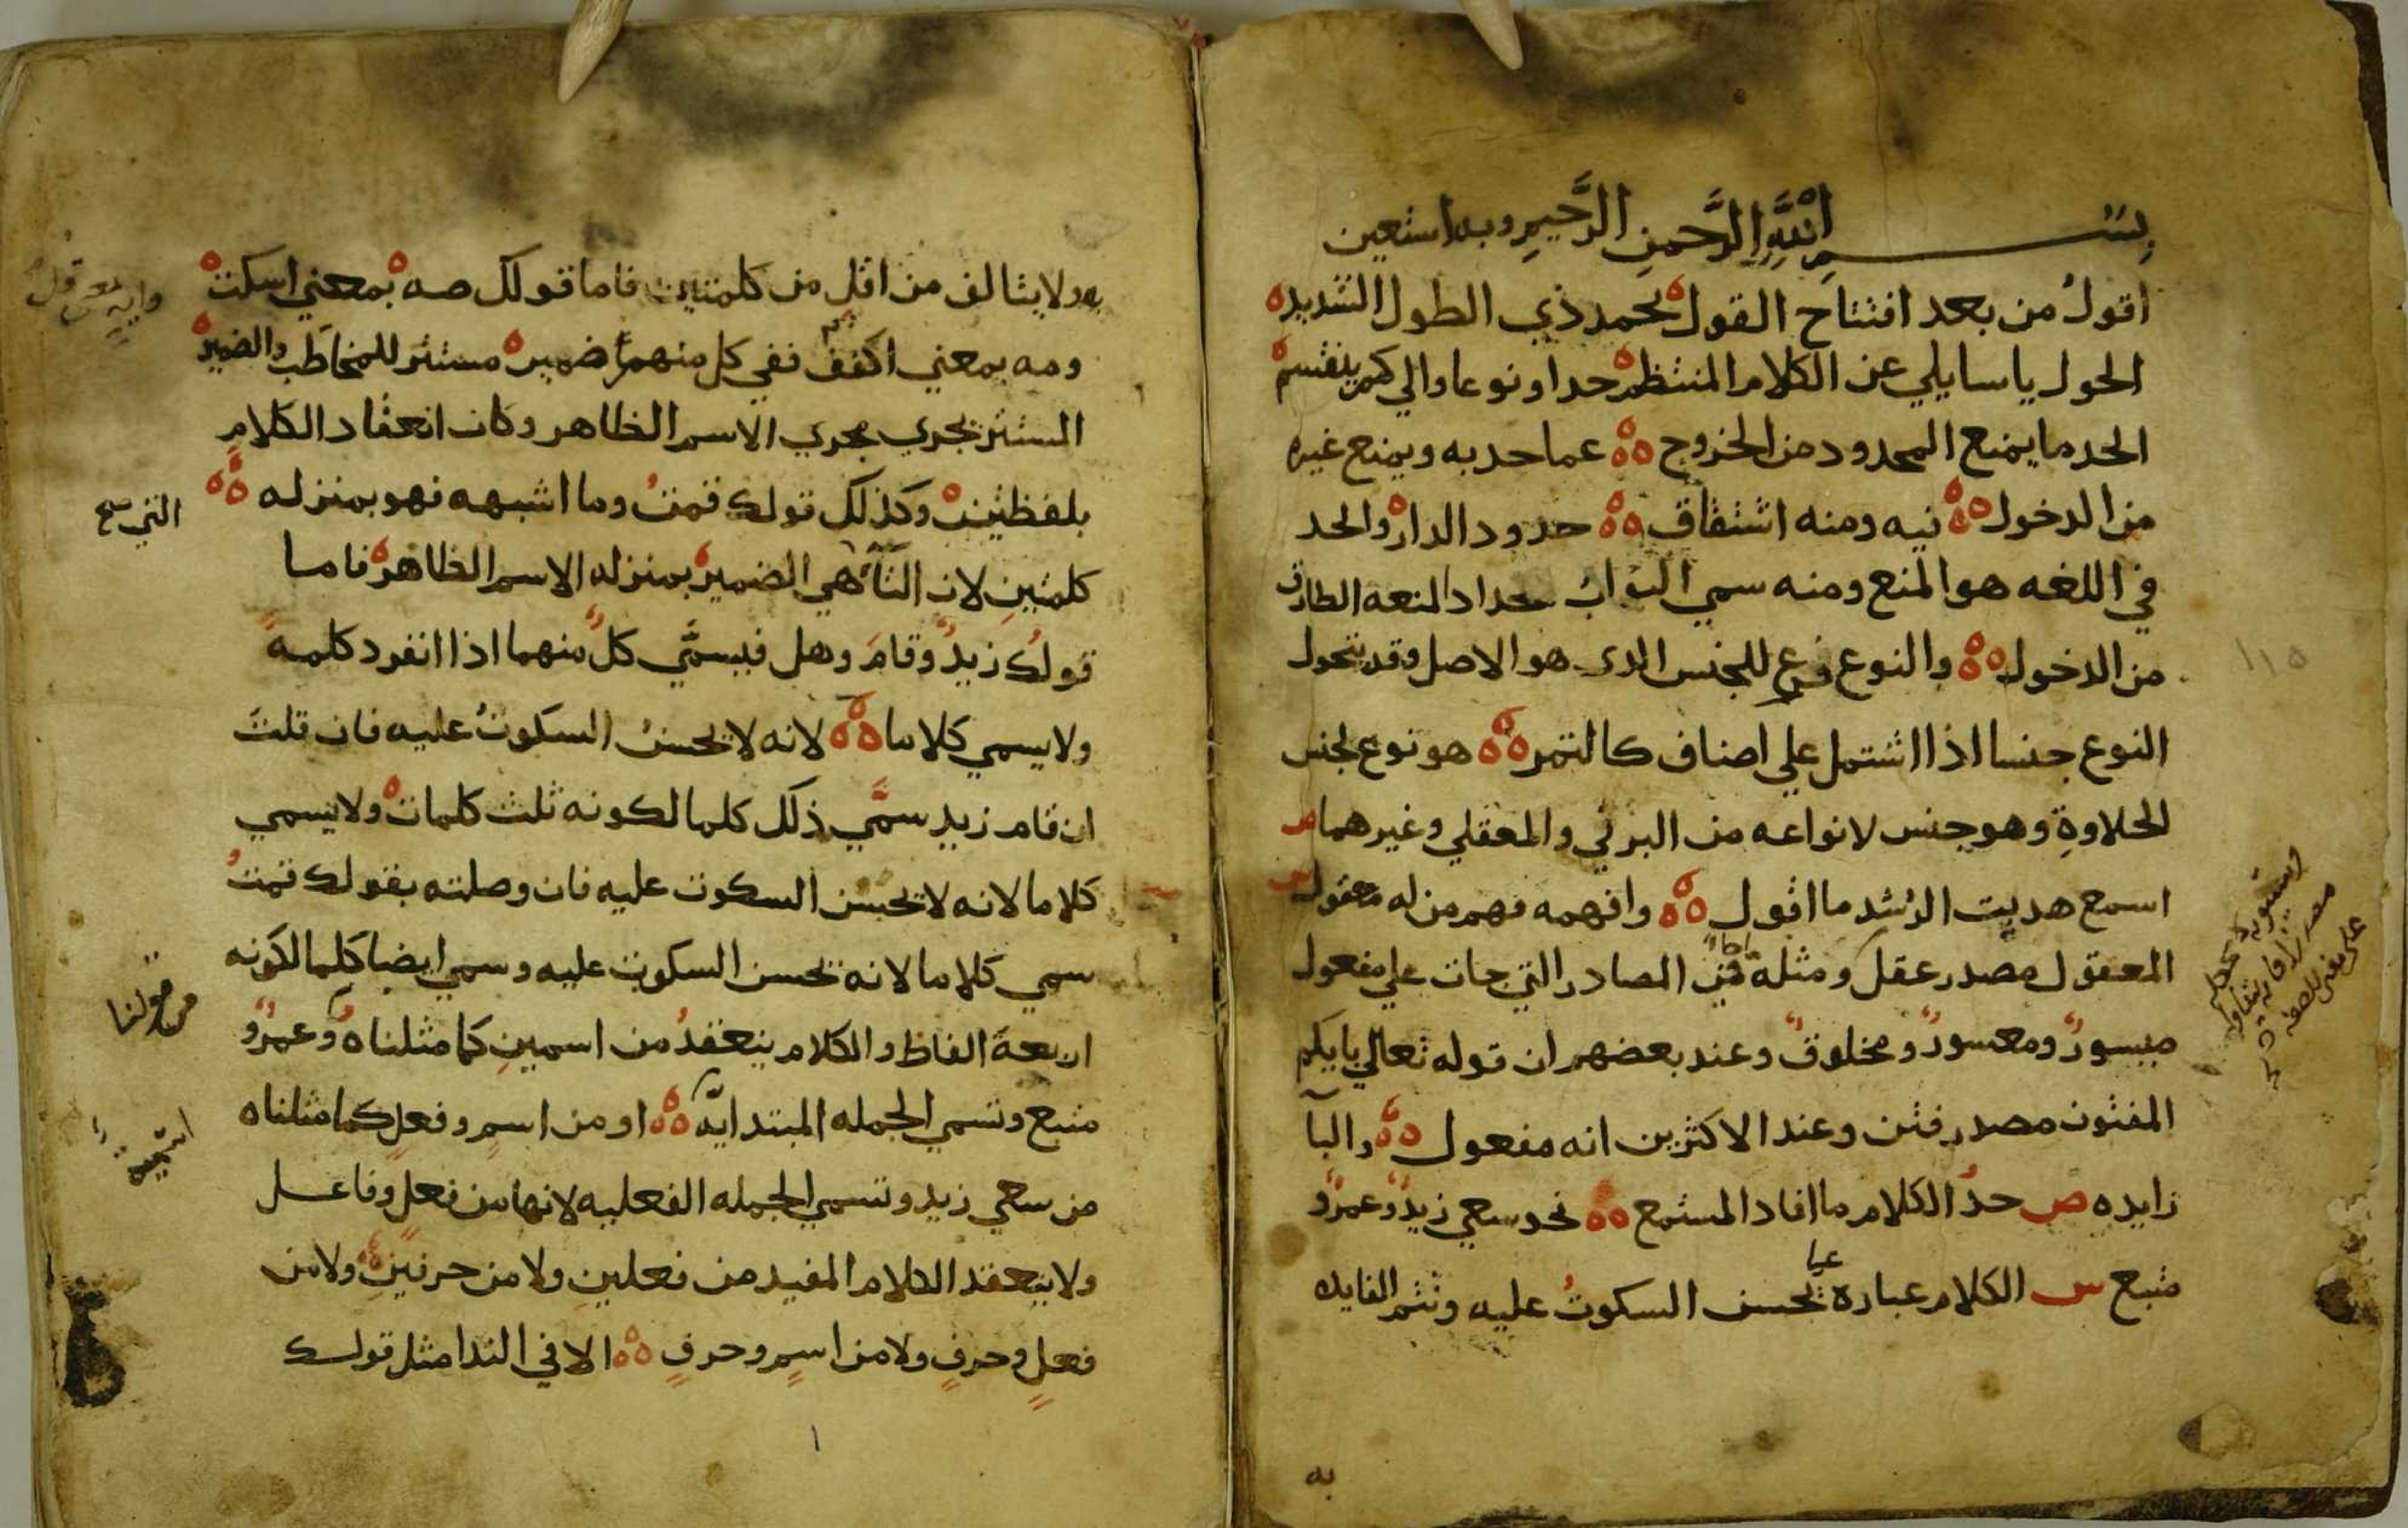 بسم الله الرحمن الرحيم وبه استعين
اقول من بعد افتتاح القول بحمد ذي الطول الشديد
الحول ياسايلي عن الكلام المنتظم حدا ونوعا والي كم ينقسم
الحد ما يمنع المحدود من الخروج عما حد به ويمنع غيره
من الدخول فيه ومنه اشتقاق حدود الدار والحد
في اللغه هو المنع ومنه سمي البواب حدادا لمنعه الطارق
من الدخول والنوع فرع للجنس الدى هو الاصل وقد يتحول
النوع جنسا اذا اشتمل علي اصناف كالتمر هو نوع لجنس
الحلاوة وهو جنس لانواعه من البرني والمعقلي وغيرهما ص
اسمع هديت الرشد ما اقول وافهمه فهم من له معقول س
المعقول مصدر عقل ومثله من المصادر التي جات علي مفعول
ميسور ومعسور ومخلوق وعند بعضهم ان قوله تعالي بايكم
المفتون مصدر فتن وعند الاكثرين انه مفعول والبآ
زايده ص حد الكلام ما افاد المستمع نحو سعي زيد وعمرو
متبع س الكلام عبارة عما يحسن السكوت عليه وتتم الفايده
به
به ولا يتالف من اقل من كلمتين فاما قولك صه بمعني اسكت
ومه بمعني اكفف ففي كل منهما ضمير مستتر للمخاطب والضمير
المستتر يجري مجري الاسم الظاهر وكان انعقاد الكلام
بلفظتين وكذلك قولك قمت وما اشبهه فهو بمنزله
التي صح
كلمتين لان التآ هي الضمير بمنزله الاسم الظاهر فاما
قولك زيد وقام وهل فيسمي كل منهما اذا انفرد كلمة
ولا يسمي كلاما لانه لا يحسن السكوت عليه فان قلت
ان قام زيد سمي ذلك كلما لكونه ثلث كلمات ولا يسمي
كلاما لانه لا يحسن السكوت عليه فان وصلته بقولك قمت
سمي كلاما لانه يحسن السكوت عليه وسمي ايضا كلما لكونه
من قولنا
اربعة الفاظ والكلام ينعقد من اسمين كما مثلناه وعمرو
متبع وتسمي الجمله المبتدايه او من اسم وفعل كما مثلناه
من سعي زيد وتسمي الجمله الفعليه لانها من فعل وفاعل
ولا ينعقد الكلام المفيد من فعلين ولا من حرفين ولا من
فعل وحرف ولا من اسم وحرف الا في الندا مثل قولك
١